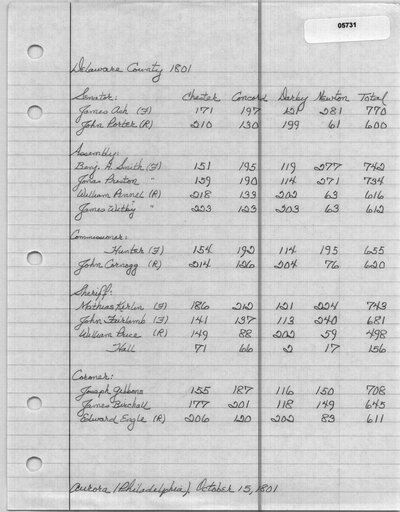 05731
Delaware County 1801
Senator: Chester Concord Darby Newton Total
James Ash (F) 171 197 121 281 770
John Porter (R) 210 130 199 61 600
Assembly:
Benj. H. Smith (F) 151 195 119 277 742
Jonas Preston " 159 190 114 271 734
William Pennel (R) 218 133 202 63 616
James Withy " 223 123 203 63 612
Commissioner:
Hunter (F) 154 192 114 195 655
John (R) 214 126 204 76 620
Sheriff:
Mathias Kerlin (F) 186 212 121 224 743
John Fairlamb (F) 141 187 113 240 681
William Price (R) 149 88 202 59 498
Hall 71 66 2 17 156
Coroner:
Joseph Gibbons 155 187 116 150 708
James Birchall 177 201 118 149 645
Edward Engle (R) 206 120 202 83 611
Aurora (Philadelphia), October 15, 1801